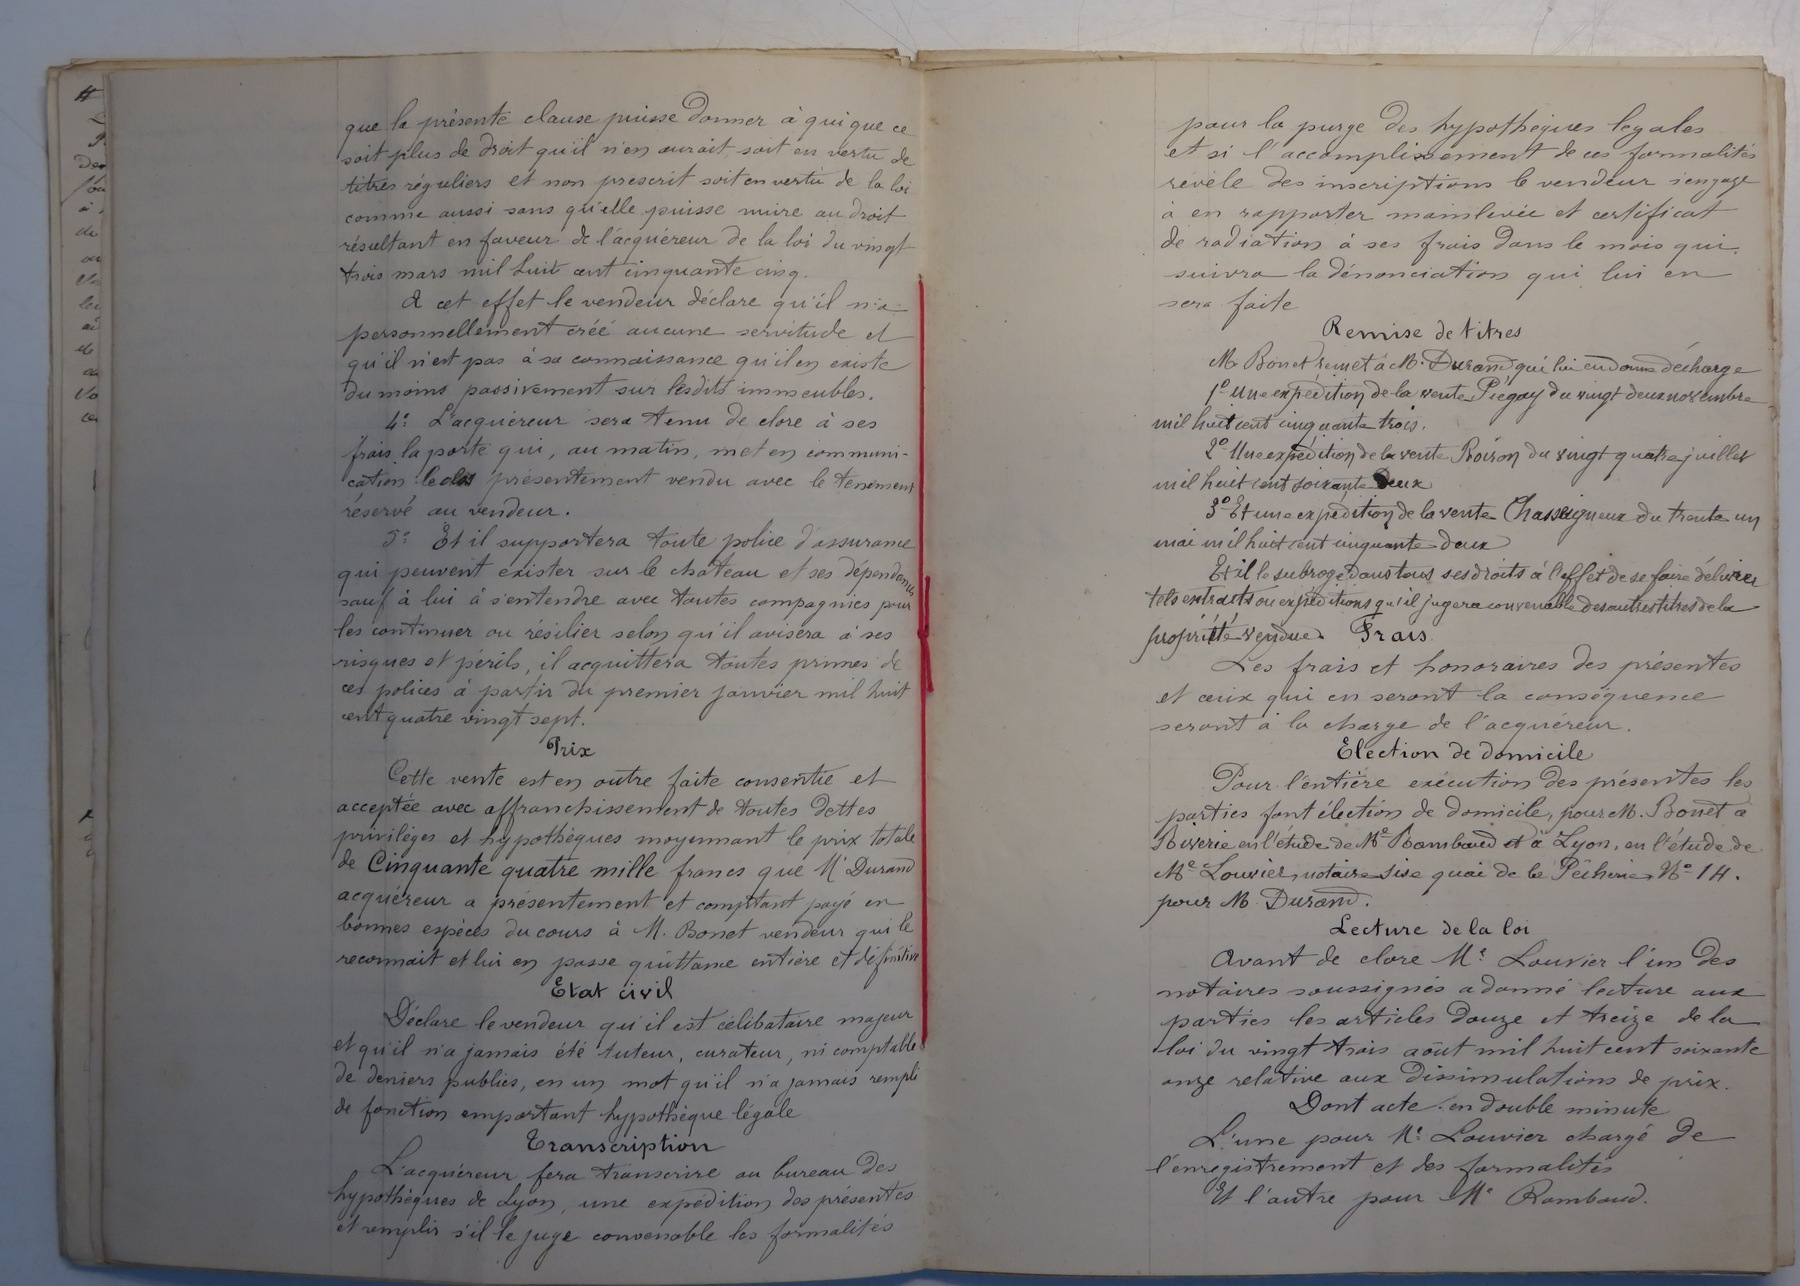 que la présente clause puisse donner à qui que ce
soit plus de droit qu'il n'en aurait, soit en vertu de
titres réguliers et non prescrit soit en vertu de la loi
comme aussi sans qu'elle puisse nuire au droit
résultant en faveur de l'acquéreur de la loi du vingt
trois mars mil huit cent cinquante cinq.
A cet effet le vendeur déclare qu'il n'a
personnellement créé aucune servitude et
qu'il n'est pas à sa connaissance qu'il en existe
du moins passivement sur lesdits immeubles.
4° L'acquéreur sera tenu de clore à ses
frais la porte qui, au matin, met en communi-
cation le clos présentement vendu avec le tènement
réservé au vendeur.
5° Et il supportera toute police d'assurance
qui peuvent exister sur le château et ses dépendances
sauf à lui à s'entendre avec toutes compagnies pour
les continuer ou résilier selon qu'il avisera à ses
risques et périls, il acquittera toutes primes de
ces polices à partir du premier janvier mil huit
cent quatre vingt sept.
Prix
Cette vente est en outre faite consentie et
acceptée avec affranchissement de toutes dettes
privilèges et hypothèques moyennant le prix totale
de Cinquante quatre mille francs que Mr Durand
acquéreur a présentement et comptant payé en
bonnes espèces du cours à M. Bonet vendeur qui le
reconnait et lui en passe quittance entière et définitive
Etat civil
Déclare le vendeur qu'il est célibataire majeur
et qu'il n'a jamais été tuteur, curateur, ni comptable
de deniers publics, en un mot qu'il n'a jamais rempli
de fonction emportant hypothèque légale
Transcription
L'acquéreur fera transcrire au bureau des
hypothèques de Lyon, une expédition des présentes
et remplir s'il le juge convenable les formalités
pour la purge des hypothèques légales
et si l'accomplissement de ces formalités
révèle des inscriptions le vendeur s'engage
à en rapporter mainlevée et certificat
de radiation à ses frais dans le mois qui
suivra la dénonciation qui lui en
sera faite
Remise de titres
M. Bonet remet à M. Durand qui lui en donne décharge
1° Une expédition de la vente Piégay du vingt deux novembre
mil huit cent cinquante trois.
2° Une expédition de la vente Poiron du vingt quatre juillet
mil huit cent soixante deux
3° Et une expédition de la vente Chasseigneux du trente un
mai mil huit cent cinquante deux
Et il le subroge dans tous ses droits à l'effet de se faire délivrer
tels extraits ou expéditions qu'il jugera convenable des autres titres de la
propriété vendue. Frais
Les frais et honoraires des présentes
et ceux qui en seront la conséquence
seront à la charge de l'acquéreur.
Election de domicile
Pour l'entière exécution des présentes les
parties font élection de domicile, pour M. Bonet à
Riverie en l'étude de Me Rambaud et à Lyon, en l'étude de
Me Louvier, notaire sise quai de la Pêcherie No 14.
pour M. Durand.
Lecture de la loi
Avant de clore Me Louvier l'un des
notaires soussignés a donné lecture aux
parties les articles douze et treize de la
loi du vingt trois août mil huit cent soixante
onze relative aux dissimulations de prix.
Dont acte en double minute
L'une pour Me Louvier chargé de
l'enregistrement et des formalités
Et l'autre pour Me Rambaud.